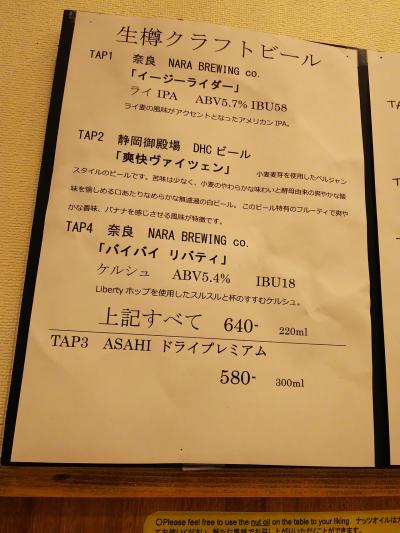 生樽クラフトビール
TAP1 奈良 NARA BREWING co.
「イージーライダー」
ライ IPA ABV5.7% IBU58
ライ麦の風味がアクセントとなったアメリカン IPA。
TAP2 静岡御殿場 DHC ビール
「爽快ヴァイツェン」 小麦麦芽を使用したベルジャン
スタイルのビールです。苦味は少なく、小麦のやわらかな味わいと酵母由来の爽やかな酸
味を愉しめる口あたりなめらかな無濾過の白ビール。このビール特有のフルーティで爽や
かな香味、バナナを感じさせる風味が特徴です。
TAP4 奈良 NARA BREWING co.
「バイバイ リバティ」
ケルシュ ABV5.4% IBU18
Liberty ホップを使用したスルスルと杯のすすむケルシュ。
上記すべて 640- 220ml
TAP3 ASAHI ドライプレミアム
580- 300ml
○Please feel free to use the nut oil on the table to your liking. ナッツオイルは